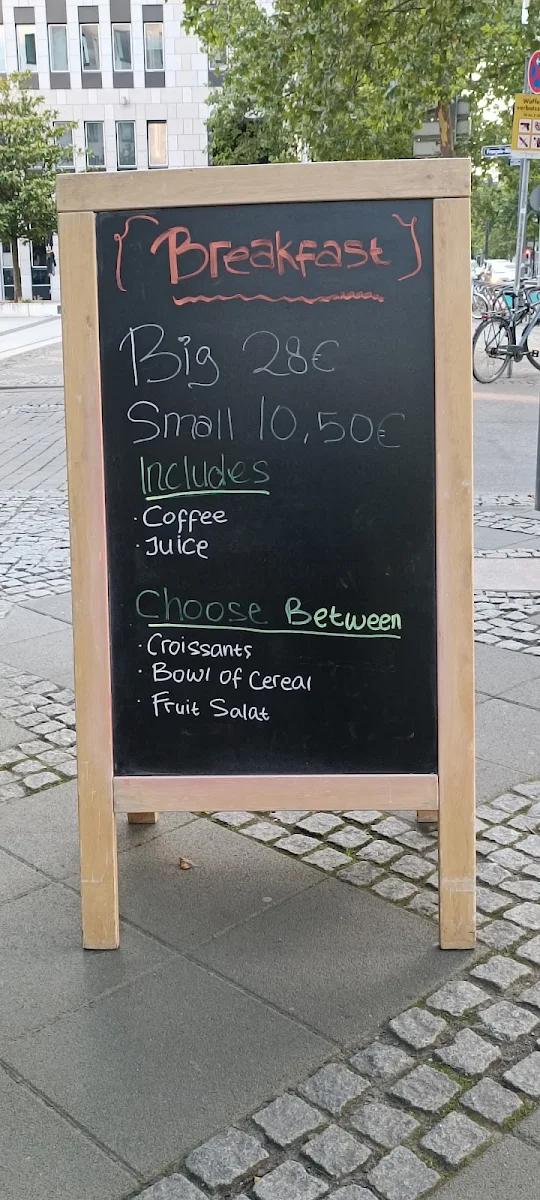 {Breakfast}
Big 28€
Small 10,50€
Includes
· Coffee
· Juice
Choose Between
· Croissants
· Bowl of Cereal
· Fruit Salat